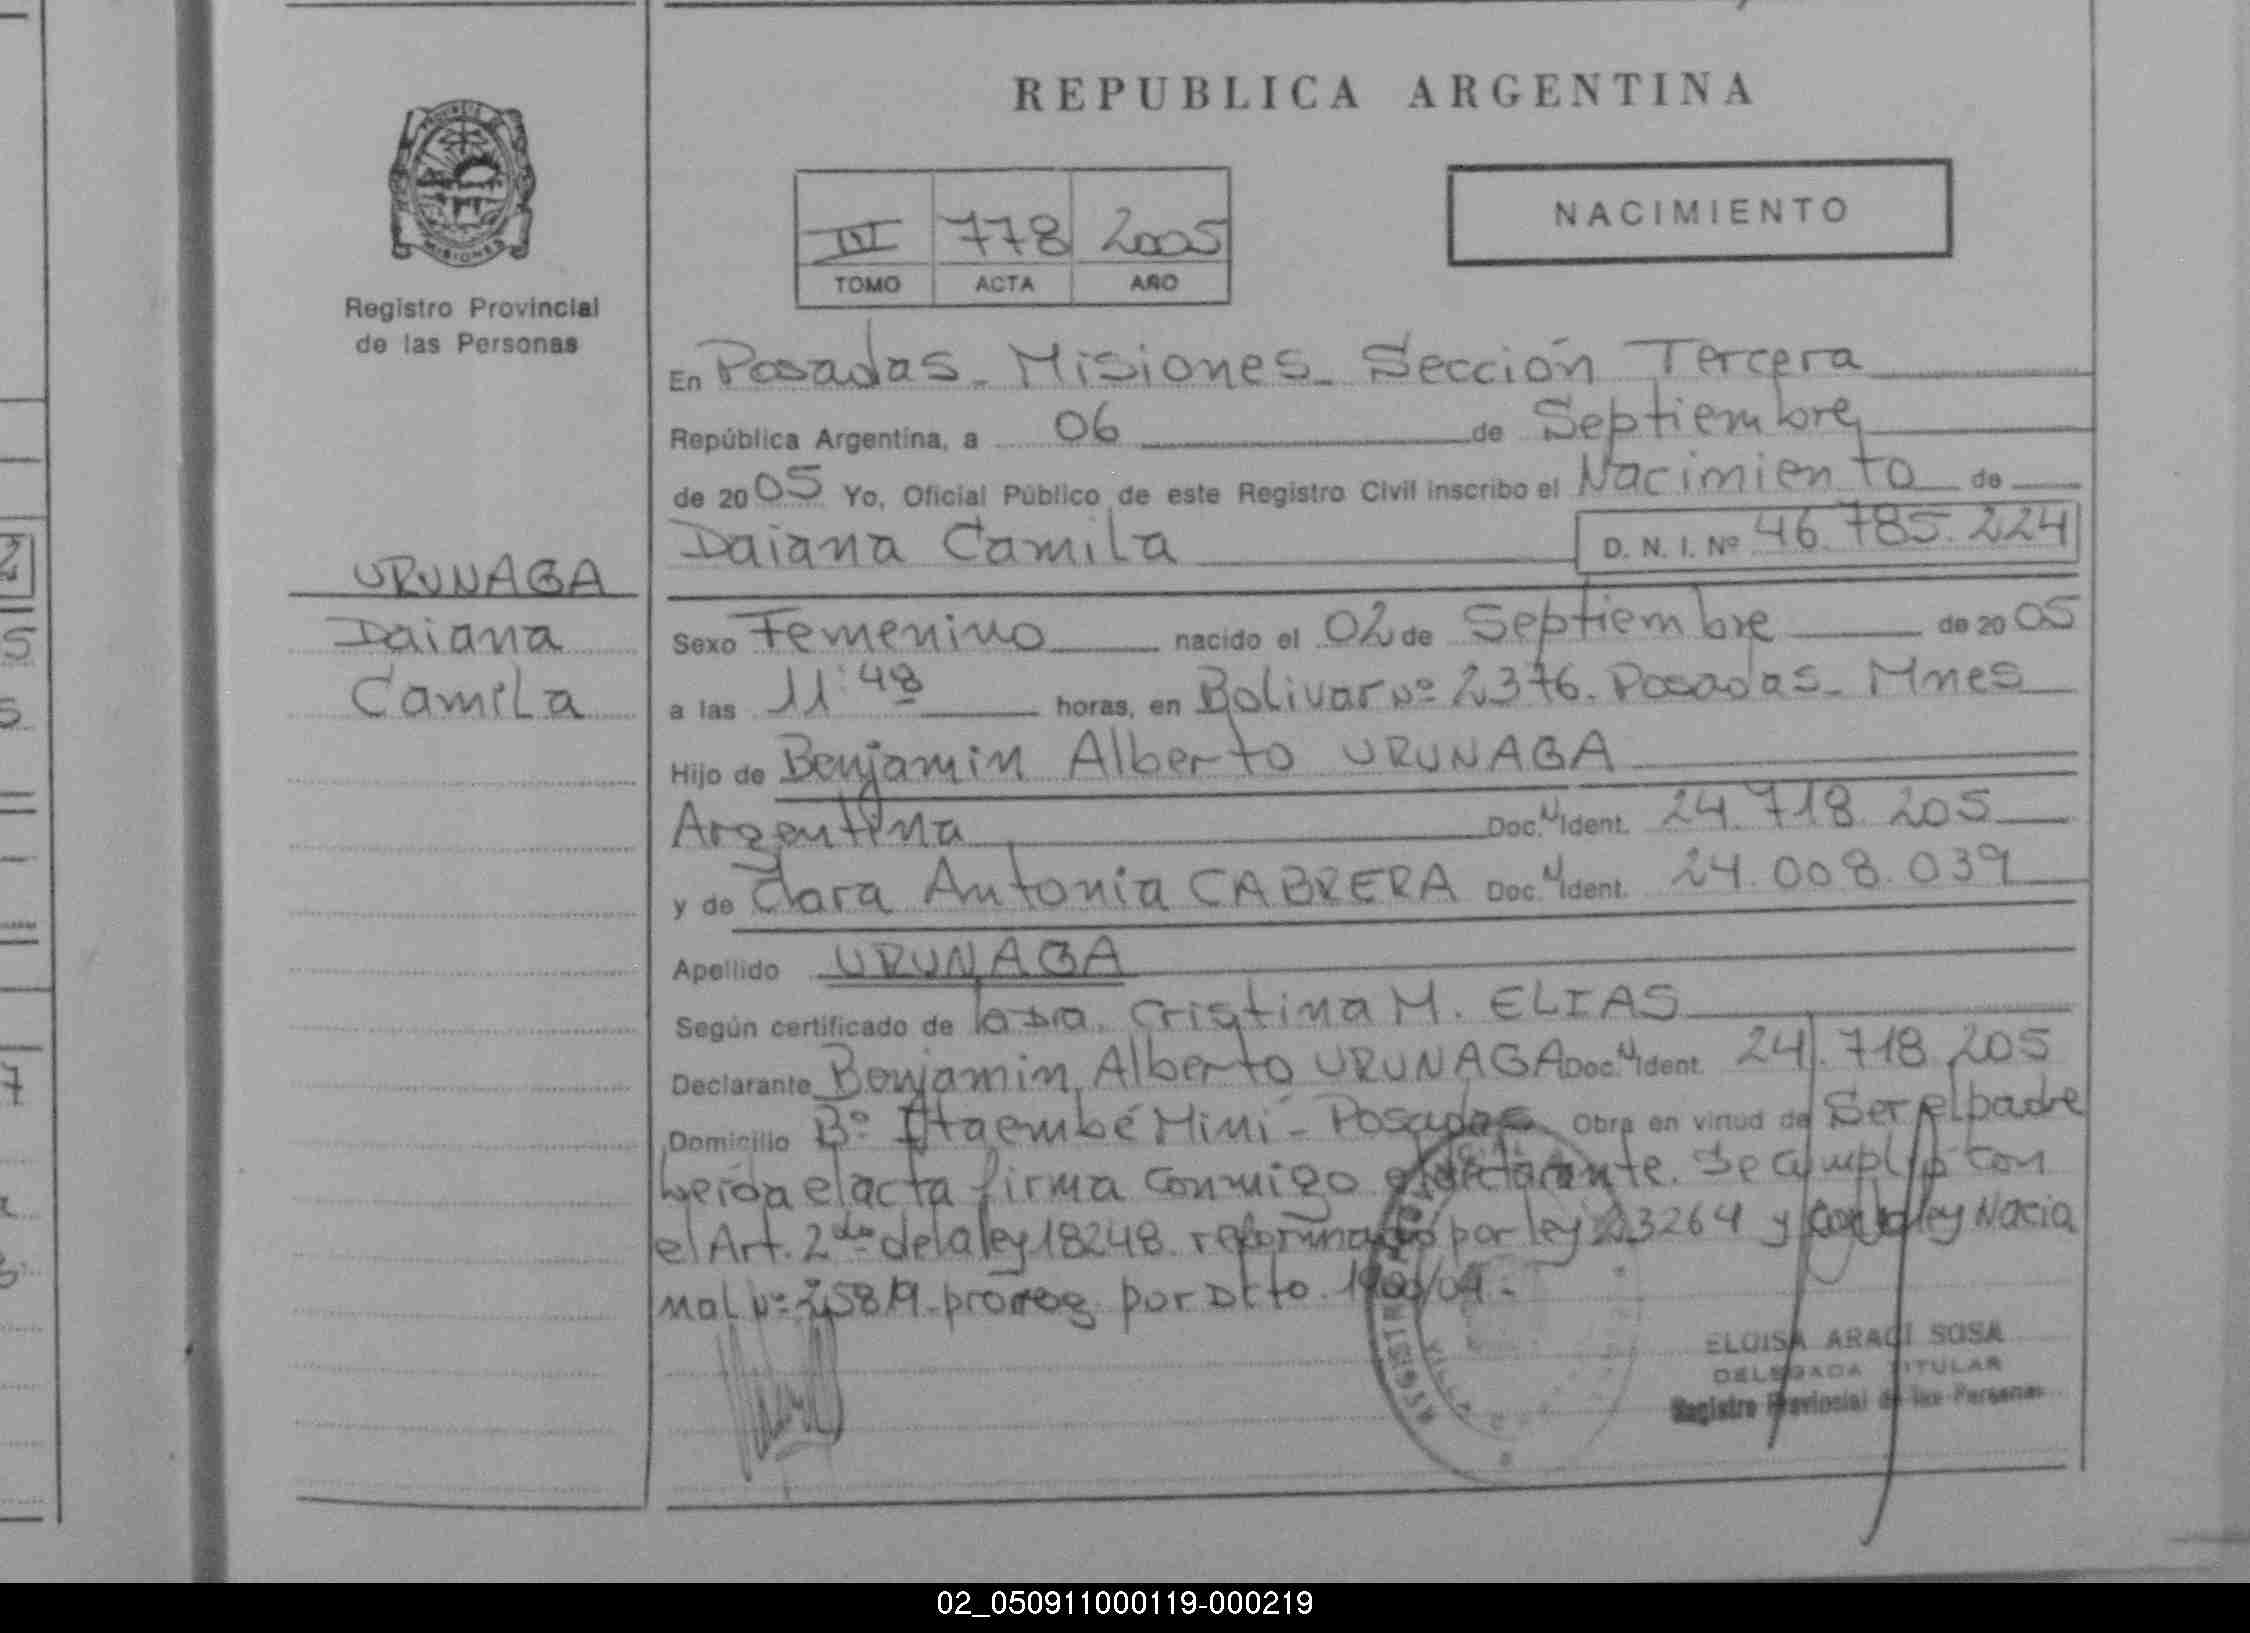 REPUBLICA ARGENTINA
NACIMIENTO
III 778 2005
TOMO ACTA AÑO
MISIONES
Registro Provincial
de las Personas
URUNAGA
Daiana
Camila
En Posadas - Misiones - Sección Tercera
República Argentina, a 06 de Septiembre
de 2005 Yo, Oficial Público de este Registro Civil inscribo el Nacimiento de
Daiana Camila D. N. I. Nº 46.785.224
Sexo Femenino nacido el 02 de Septiembre de 2005
a las 11:48 horas, en Bolivar Nº 2376. Posadas - Mnes
Hijo de Benjamin Alberto URUNAGA
Argentina Doc. N Ident. 24.718.205
y de Clara Antonia CABRERA Doc. N Ident. 24.008.039
Apellido URUNAGA
Según certificado de la Dra. Cristina M. ELIAS
Declarante Benjamin Alberto URUNAGA Doc. N Ident. 24.718.205
Domicilio Bº Itaembé Miní - Posadas Obra en virtud de Ser el padre
Leída el acta firma conmigo el declarante. Se cumplió con
el Art. 2do de la ley 18248 reformado por ley 23264 y con la ley Nacio
nal Nº 25819 - prorrog. por Dcto.
REGISTR
VILLA
ELOISA ARACI SOSA
DELEGADA TITULAR
Registro Provincial de las Personas
02_050911000119-000219